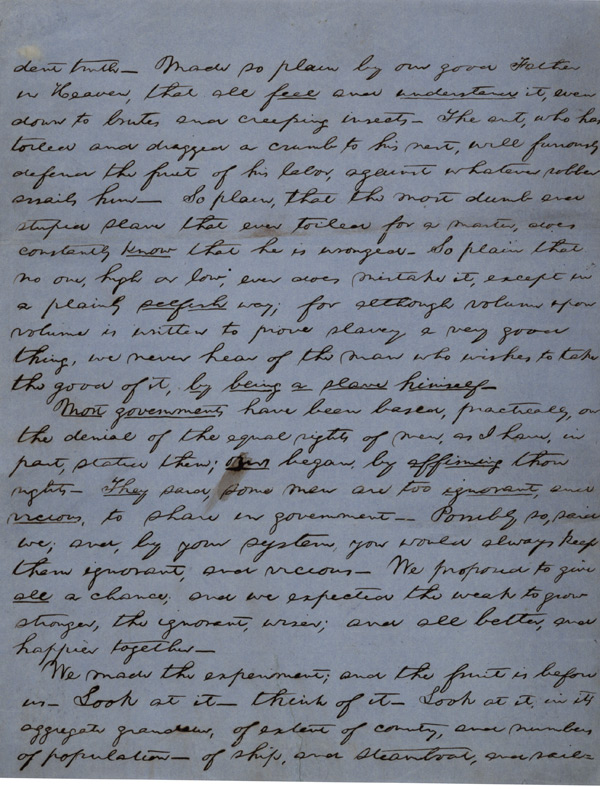 dent truth— Made so plain by our good Father
in Heaven, that all feel and understand it, even
down to brutes and creeping insects— The ant, who has
toiled and dragged a crumb to his nest, will furiously
defend the fruit of his labor, against whatever robber
assails him— So plain, that the most dumb and
stupid slave that ever toiled for a master, does
constantly know that he is wronged— So plain that
no one, high or low, ever does mistake it, except in
a plainly selfish way; for although volume upon
volume is written to prove slavery a very good
thing, we never hear of the man who wishes to take
the good of it, by being a slave himself—
Most governments have been based, practically, on
the denial of the equal rights of men, as I have, in
part, stated them; ours began, by affirming those
rights— They said, some men are too ignorant, and
vicious, to share in government— Possibly so, said
we; and, by your system, you would always keep
them ignorant, and vicious— We proposed to give
all a chance; and we expected the weak to grow
stronger, the ignorant, wiser; and all better, and
happier together—
We made the experiment; and the fruit is before
us— Look at it— think of it— Look at it, in its
aggregate grandeur, of extent of country, and numbers
of population— of ship, and steamboat, and rail-